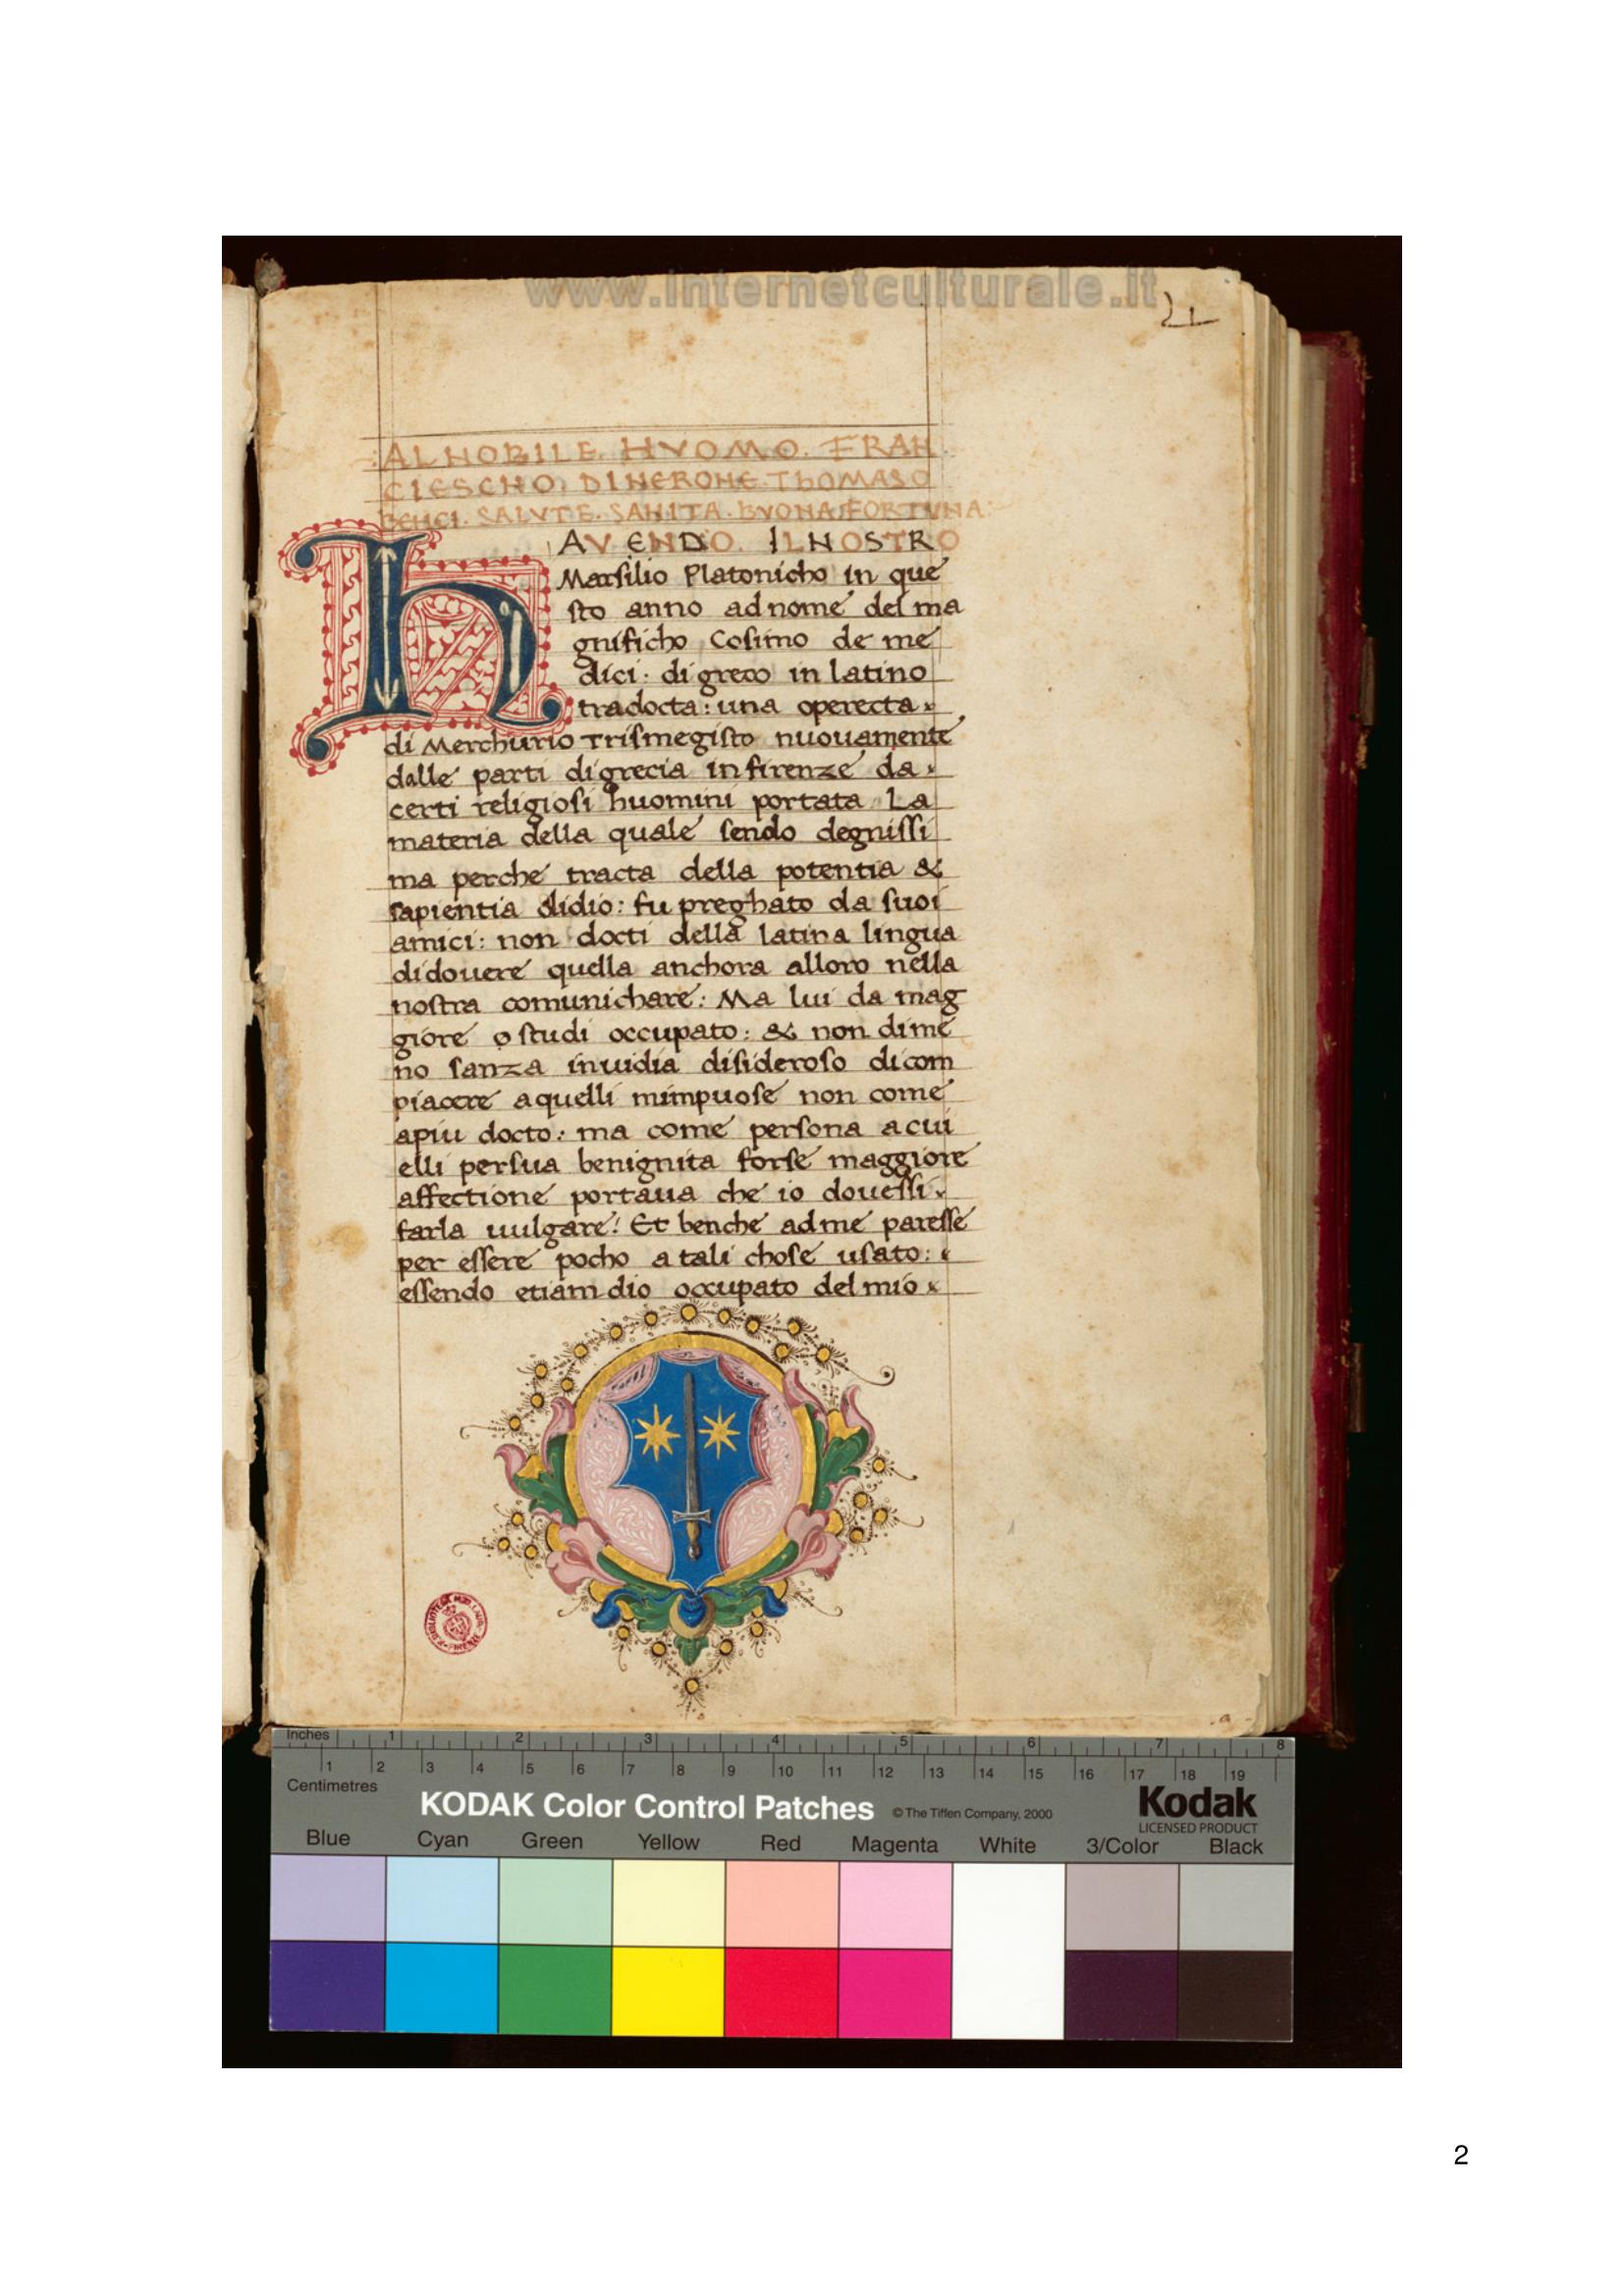 www.internetculturale.it
ALNOBILE. HVOMO. FRAN
CIESCHO. DINERONE. THOMASO
BENCI. SALVTE. SANITA. BVONA FORTVNA:
hAVENDO. ILNOSTRO
Marsilio Platonicho in que
sto anno ad nome del ma
gnificho Cosimo de me
dici: di greco in latino
tradocta: una operecta
di Merchurio Trismegisto nuouamente
dalle parti di grecia in firenze da
certi religiosi huomini portata. La
materia della quale sendo degnissi
ma perche tracta della potentia &
sapientia didio: fu preghato da suoi
amici: non docti della latina lingua
didouere quella anchora alloro nella
nostra comunichare: Ma lui da mag
giore studi occupato: & non dime
no sanza inuidia disideroso dicom
piacere aquelli mimpuose non come
apiu docto: ma come persona acui
elli persua benignita forse maggiore
affectione portaua che io douessi
farla uulgare! Et benche adme paresse
per essere pocho a tali chose usato:
essendo etiam dio occupato del mio
Inches 1 2 3 4 5 6 7 8
1 2 3 4 5 6 7 8 9 10 11 12 13 14 15 16 17 18 19
Centimetres
KODAK Color Control Patches © The Tiffen Company, 2000 Kodak
LICENSED PRODUCT
Blue Cyan Green Yellow Red Magenta White 3/Color Black
2